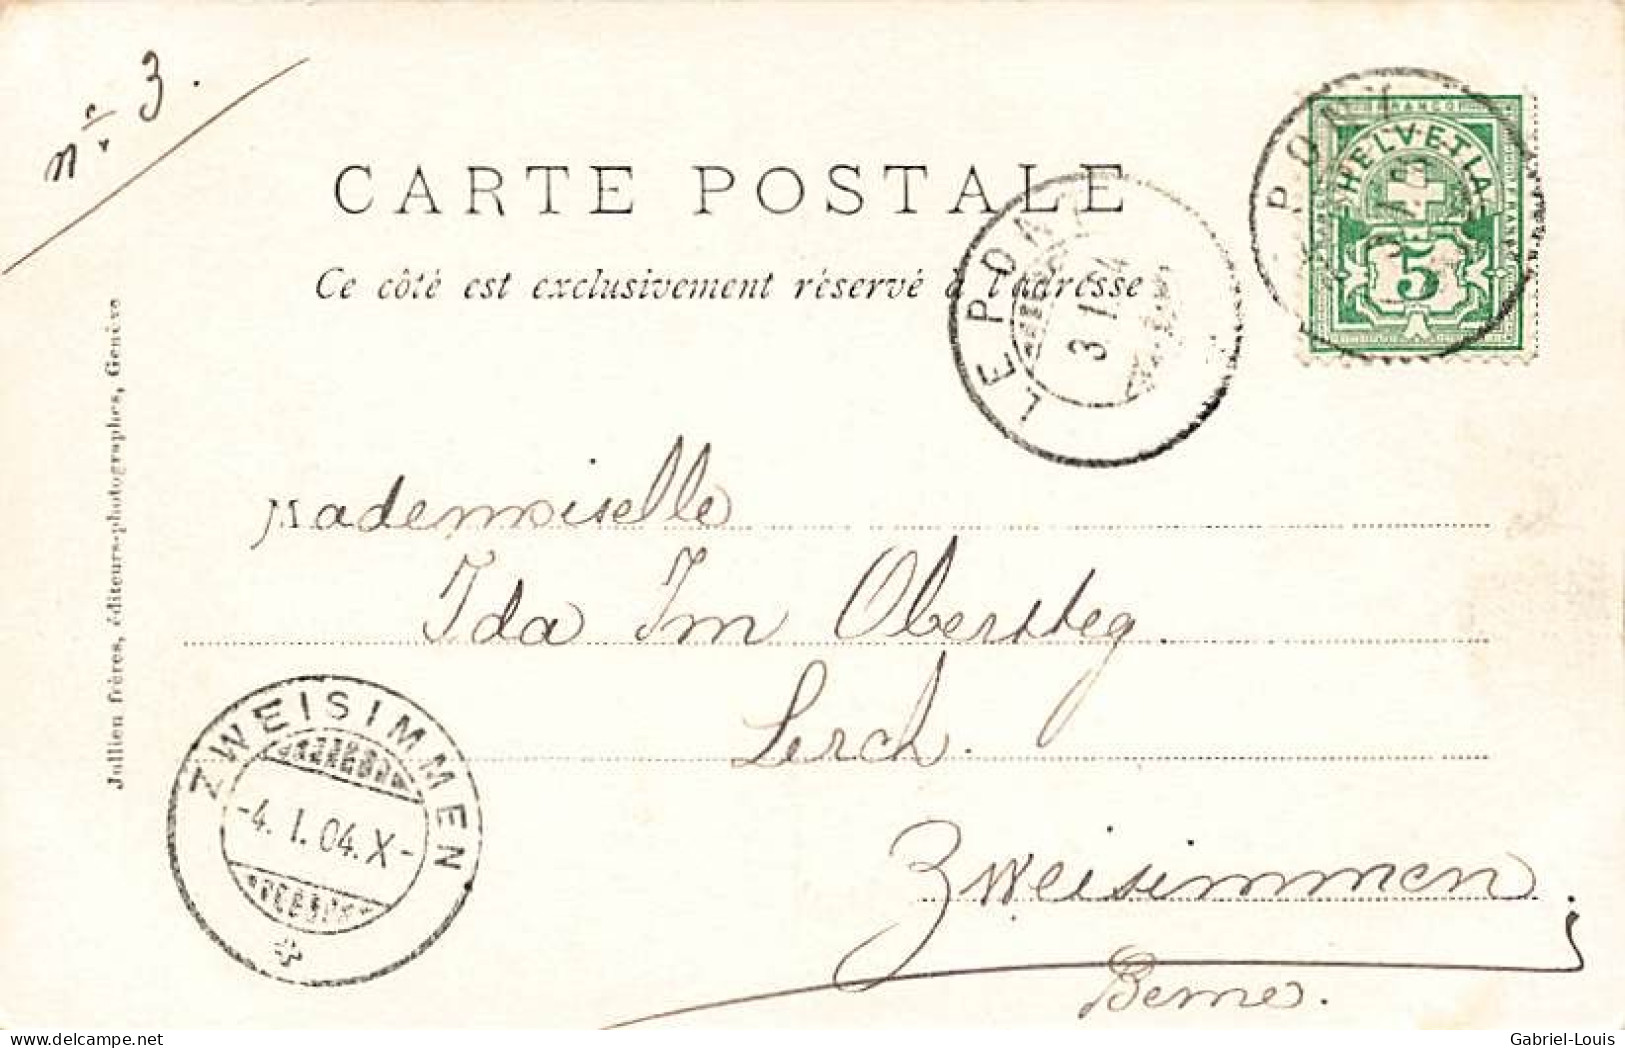 nº 3.
CARTE POSTALE
Ce côté est exclusivement réservé à l'adresse
FRANCO
HELVETIA
5
PONT
LE PONT
3 I 04
Jullien frères, éditeurs-photographes, Genève
Mademoiselle
Ida Im Obersteg.
Lerch.
Zweisimmen.
Berne.
ZWEISIMMEN
-4. I. 04. X-
delcampe.net
Gabriel-Louis